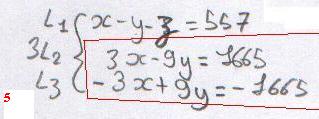 L1 { x - y - z = 557
3L2 { 3x - 9y = 1665
L3 { -3x + 9y = -1665
5